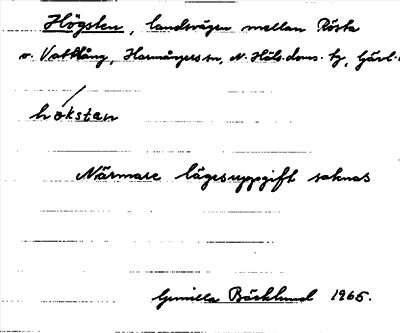 Högsten, landsvägen mellan Rösta
o. Vattlång, Harmångers sn, N. Häls. doms. tg, Gävl.
hökstan
Närmare lägesuppgift saknas
Gunilla Bäcklund 1965.